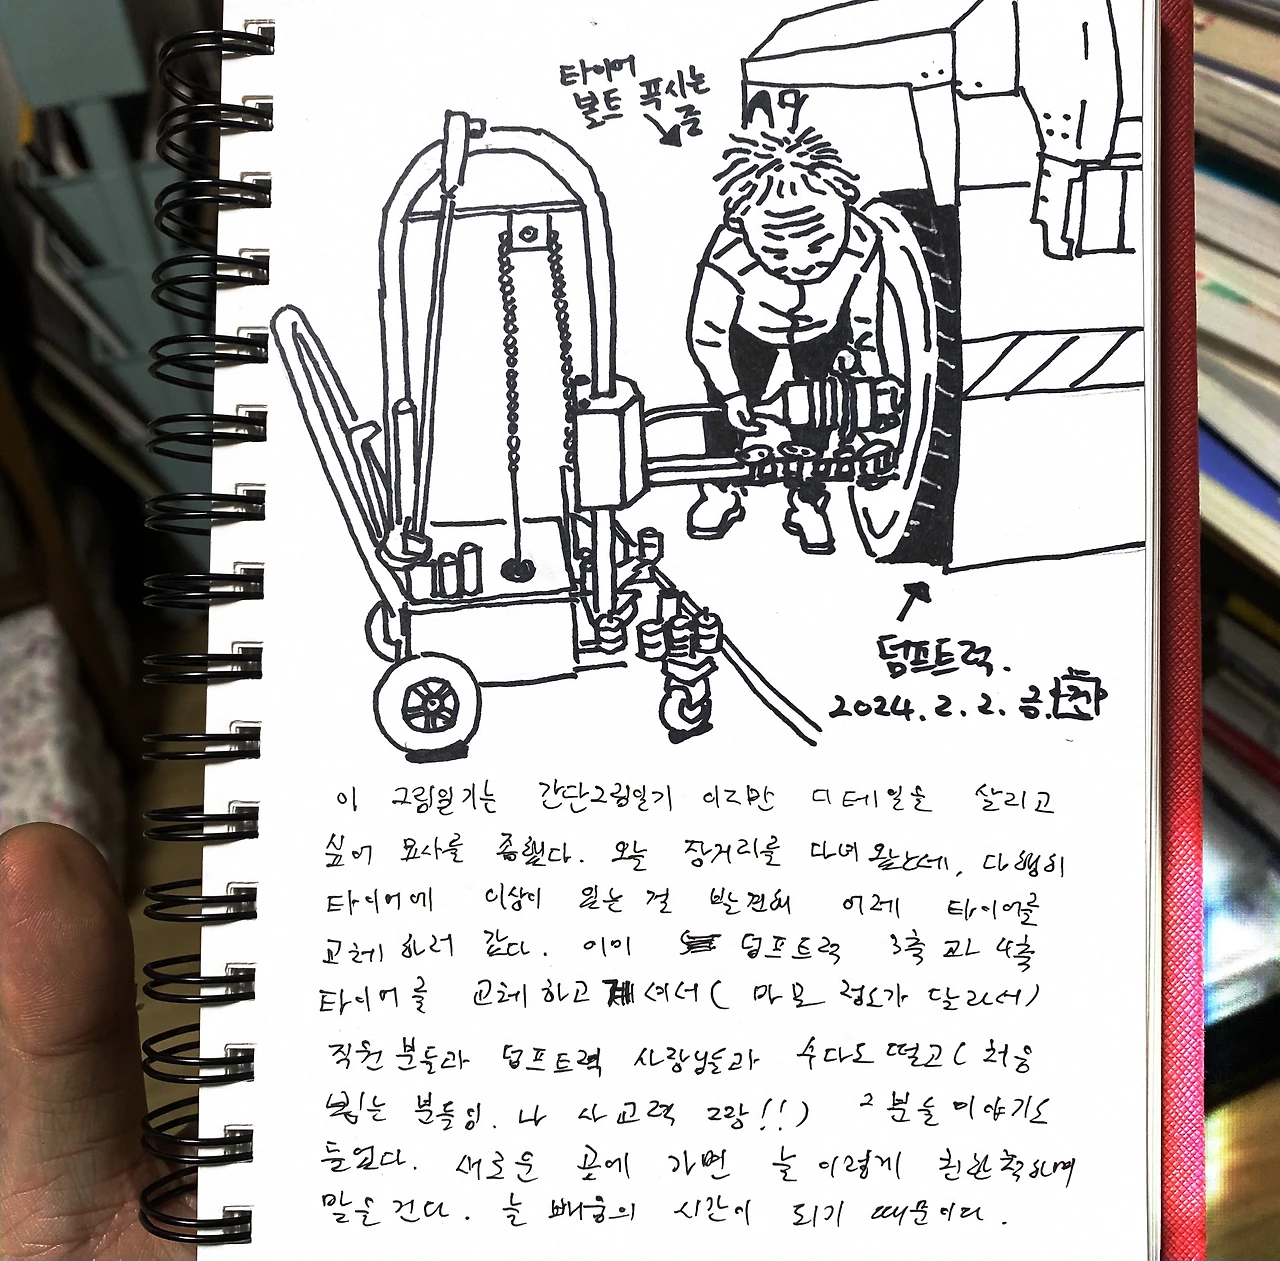 타이어
볼트 푸시는
중
덤프트럭.
2024. 2. 2. 금.
이 그림일기는 간단그림일기 이지만 디테일을 살리고
싶어 묘사를 좀했다. 오늘 장거리를 다녀왔는데, 다행히
타이어에 이상이 있는 걸 발견해 어제 타이어를
교체하러 갔다. 이미 덤프트럭 3축과 4축
타이어를 교체하고 계셔서( 마모 정도가 달라서)
직원분들과 덤프트럭 사장님들과 수다도 떨고( 처음
뵙는 분들임. 나 사교력 그랑!!) 그분들 이야기도
들었다. 새로운 곳에 가면 늘 이렇게 친한척하며
말을 건다. 늘 배움의 시간이 되기 때문이다.